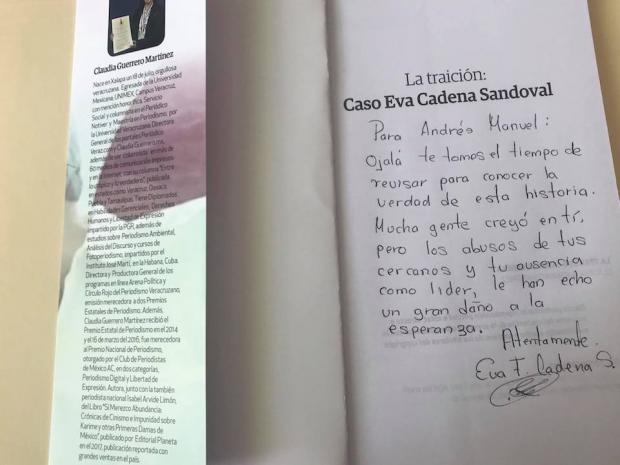 Claudia Guerrero Martínez
Nace en Xalapa un 18 de julio, orgullosa
veracruzana. Egresada de la Universidad
Mexicana, UNIMEX, Campus Veracruz,
con mención honorífica. Servicio
Social y columnista en el Periódico
Notiver y Maestría en Periodismo, por
la Universidad Veracruzana. Directora
General de los portales Periódico
Veraz.com y Claudia Guerrero.mx,
además de ser columnista en más de
60 medios de comunicación impresos
y en internet, con su columna "Entre
lo utópico y lo verdadero", publicada
en estados como Veracruz, Oaxaca,
Puebla y Tamaulipas. Tiene Diplomados
en Habilidades Gerenciales, Derechos
Humanos y Libertad de Expresión
impartido por la PGR, además de
estudios sobre Periodismo Ambiental,
Análisis del Discurso y cursos de
Fotoperiodismo, impartidos por el
Instituto José Martí, en la Habana, Cuba.
Directora y Productora General de los
programas en línea Arena Política y
Círculo Rojo del Periodismo Veracruzano,
emisión merecedora a dos Premios
Estatales de Periodismo. Además,
Claudia Guerrero Martínez recibió el
Premio Estatal de Periodismo en el 2014
y el 16 de marzo del 2016, fue merecedora
al Premio Nacional de Periodismo,
otorgado por el Club de Periodistas
de México AC, en dos categorías,
Periodismo Digital y Libertad de
Expresión. Autora, junto con la también
periodista nacional Isabel Arvide Limón,
del Libro "Sí Merezco Abundancia:
Crónicas de Cinismo e Impunidad sobre
Karime y otras Primeras Damas de
México", publicado por Editorial Planeta
en el 2017, publicación reportada con
grandes ventas en el país.
La traición:
Caso Eva Cadena Sandoval
Para Andrés Manuel:
Ojalá te tomes el tiempo de
revisar para conocer la
verdad de esta historia.
Mucha gente creyó en tí,
pero los abusos de tus
cercanos y tu ausencia
como lider, le han echo
un gran daño a la
esperanza.
Atentamente.
Eva F. Cadena S.